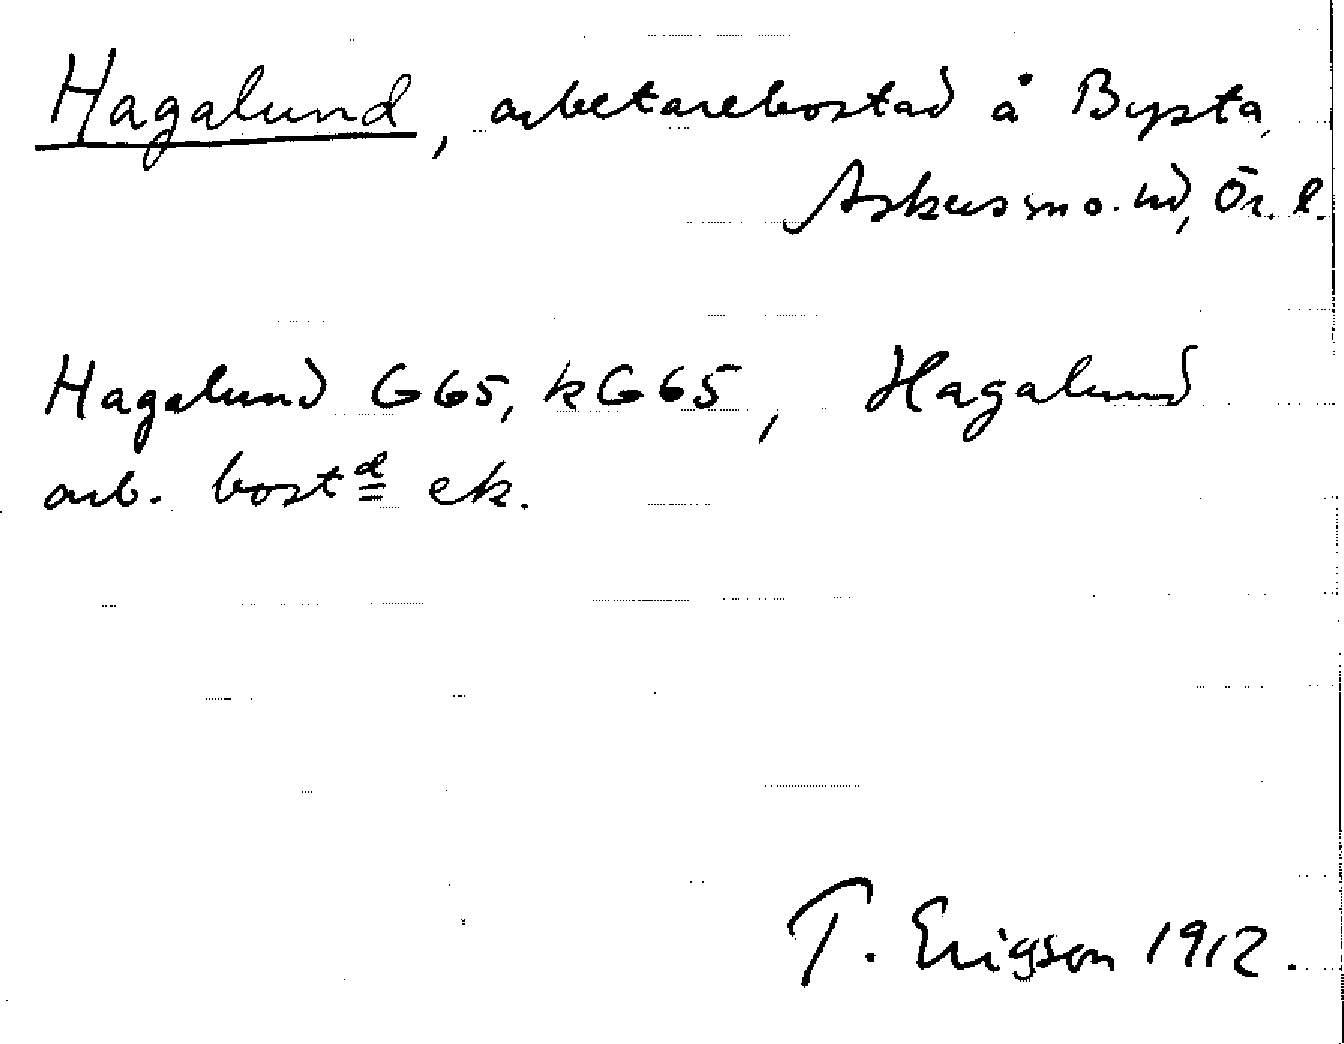 Hagalund, arbetarebostad å Bysta,
Askers sn o. hd, Ör. l.
Hagalund G65, kG65, Hagalund
arb. bostd ek.
T. Ericson 1912.